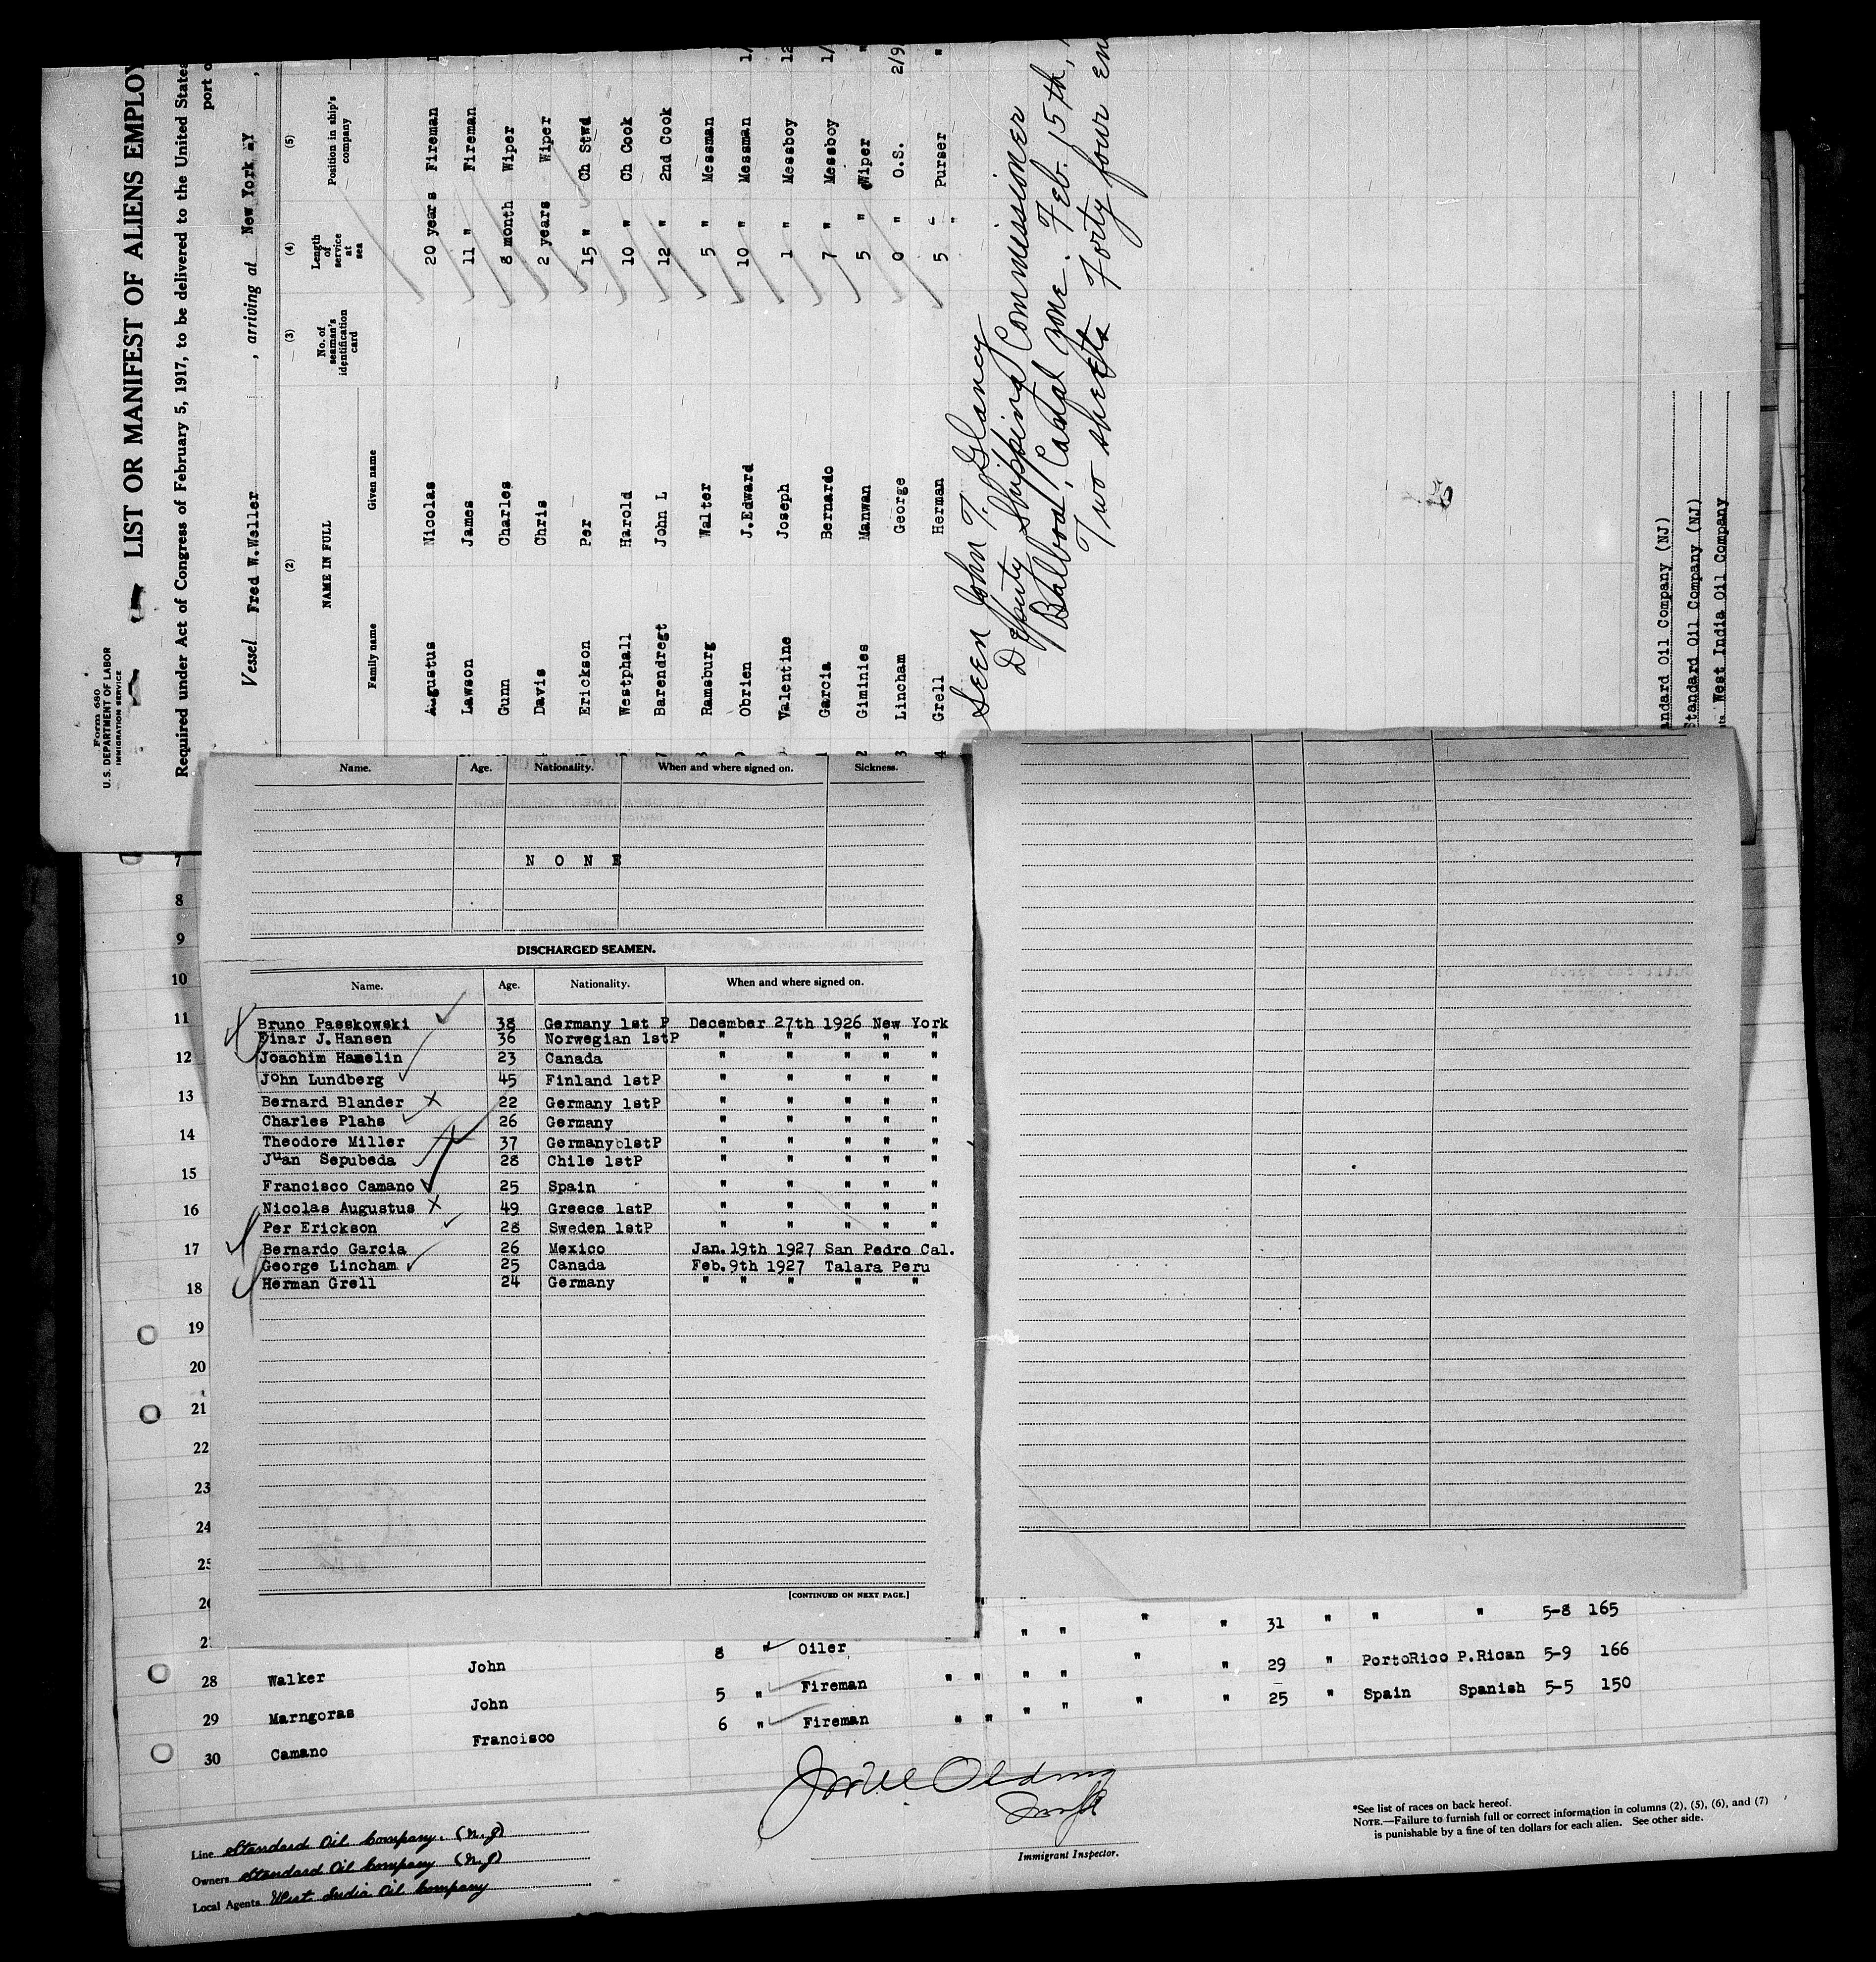 Form 680
U.S. DEPARTMENT OF LABOR
IMMIGRATION SERVICE
LIST OR MANIFEST OF ALIENS EMPLOY
Required under Act of Congress of February 5, 1917, to be delivered to the United State
port o
Vessel Fred W.Weller , arriving at New York NY ,
(2) (3) (4) (5)
NAME IN FULL No. of seaman's identification card Length of service at sea Position in ship's company
Family name Given name
Augustus Nicolas 20 years Fireman
Lawson James 11 " Fireman
Gunn Charles 8 month Wiper
Davis Chris 2 years Wiper
Erickson Per 15 " Ch Stwd
Westphall Harold 10 " Ch Cook
Barendregt John L 12 " 2nd Cook
Ramsburg Walter 5 " Messman
Obrien J.Edward 10 " Messman 1/
Valentine Joseph 1 " Messboy 12
Garcia Bernardo 7 " Messboy 1/
2 Giminies Manwan 5 " Wiper "
3 Lincham George 0 " O.S. 2/9
4 Grell Herman 5 " Purser "
Seen John T. Glancy
Deputy Shipping Commissioner
Balboa, Canal Zone. Feb. 15th,
Two sheets Forty four en
andard Oil Company (NJ)
Standard Oil Company (NJ)
West India Oil Company
Name. Age. Nationality. When and where signed on. Sickness.
N O N E
DISCHARGED SEAMEN.
Name. Age. Nationality. When and where signed on.
Bruno Passkowski 38 Germany 1st P December 27th 1926 New York
Einar J.Hansen 36 Norwegian 1stP " " " " "
Joachim Hamelin 23 Canada " " " " "
John Lundberg 45 Finland 1stP " " " " "
Bernard Blander X 22 Germany 1stP " " " " "
Charles Plahs 26 Germany " " " " "
Theodore Miller 37 Germanyb1stP " " " " "
Juan Sepubeda 28 Chile 1stP " " " " "
Francisco Camano 25 Spain " " " " "
Nicolas Augustus X 49 Greece 1stP " " " " "
Per Erickson 28 Sweden 1stP " " " " "
Bernardo Garcia 26 Mexico Jan.19th 1927 San Pedro Cal.
George Lincham 25 Canada Feb.9th 1927 Talara Peru
Herman Grell 24 Germany " " " " "
[CONTINUED ON NEXT PAGE.]
7
8
9
10
11
12
13
14
15
16
17
18
19
20
21
22
23
24
25
28 Walker John 8 " Oiler " " " " 31 " " " 5-8 165
29 Marngoras John 5 " Fireman " " " " " " 29 " PortoRico P.Rican 5-9 166
30 Camano Francisco 6 " Fireman " " " " " " 25 " Spain Spanish 5-5 150
Immigrant Inspector.
Line Standard Oil Company. (N.J)
Owners Standard Oil Company (N.J)
Local Agents West India Oil Company
*See list of races on back hereof.
NOTE.—Failure to furnish full or correct information in columns (2), (5), (6), and (7)
is punishable by a fine of ten dollars for each alien. See other side.